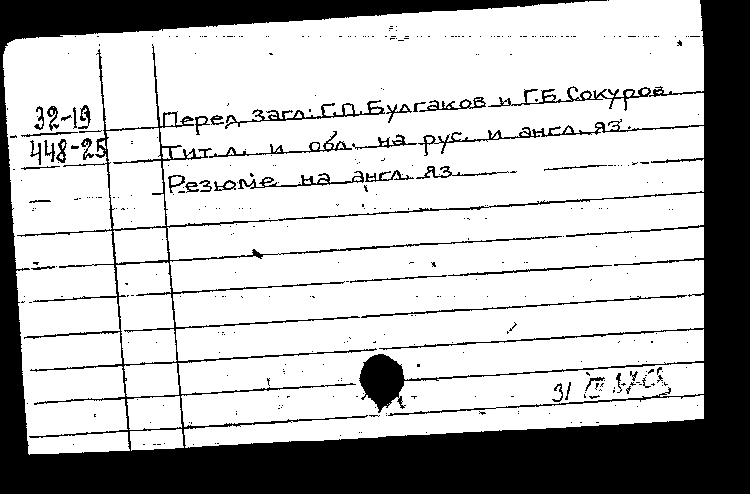 32-19 Перед загл: Г.П. Булгаков и Г.Б. Сокуров.
448-25 Тит. л. и обл. на рус. и англ. яз.
Резюме на англ. яз.
31